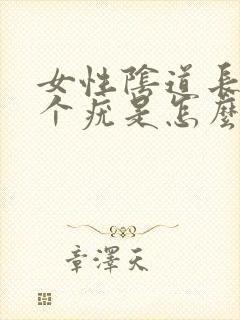 女性陰道長
个疣是怎麼
章澤天